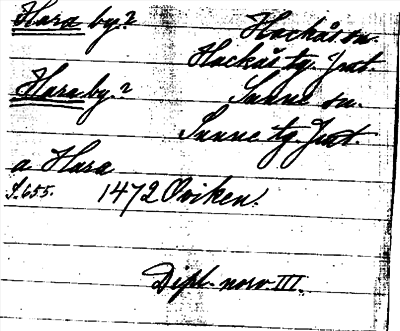 Hara by? Hackås sn.
Hackås tg. Jmt.
Hara by? Sunne sn.
Sunne tg. Jmt.
a Hara
S. 655. 1472 Oviken.
Dipl. norv III.